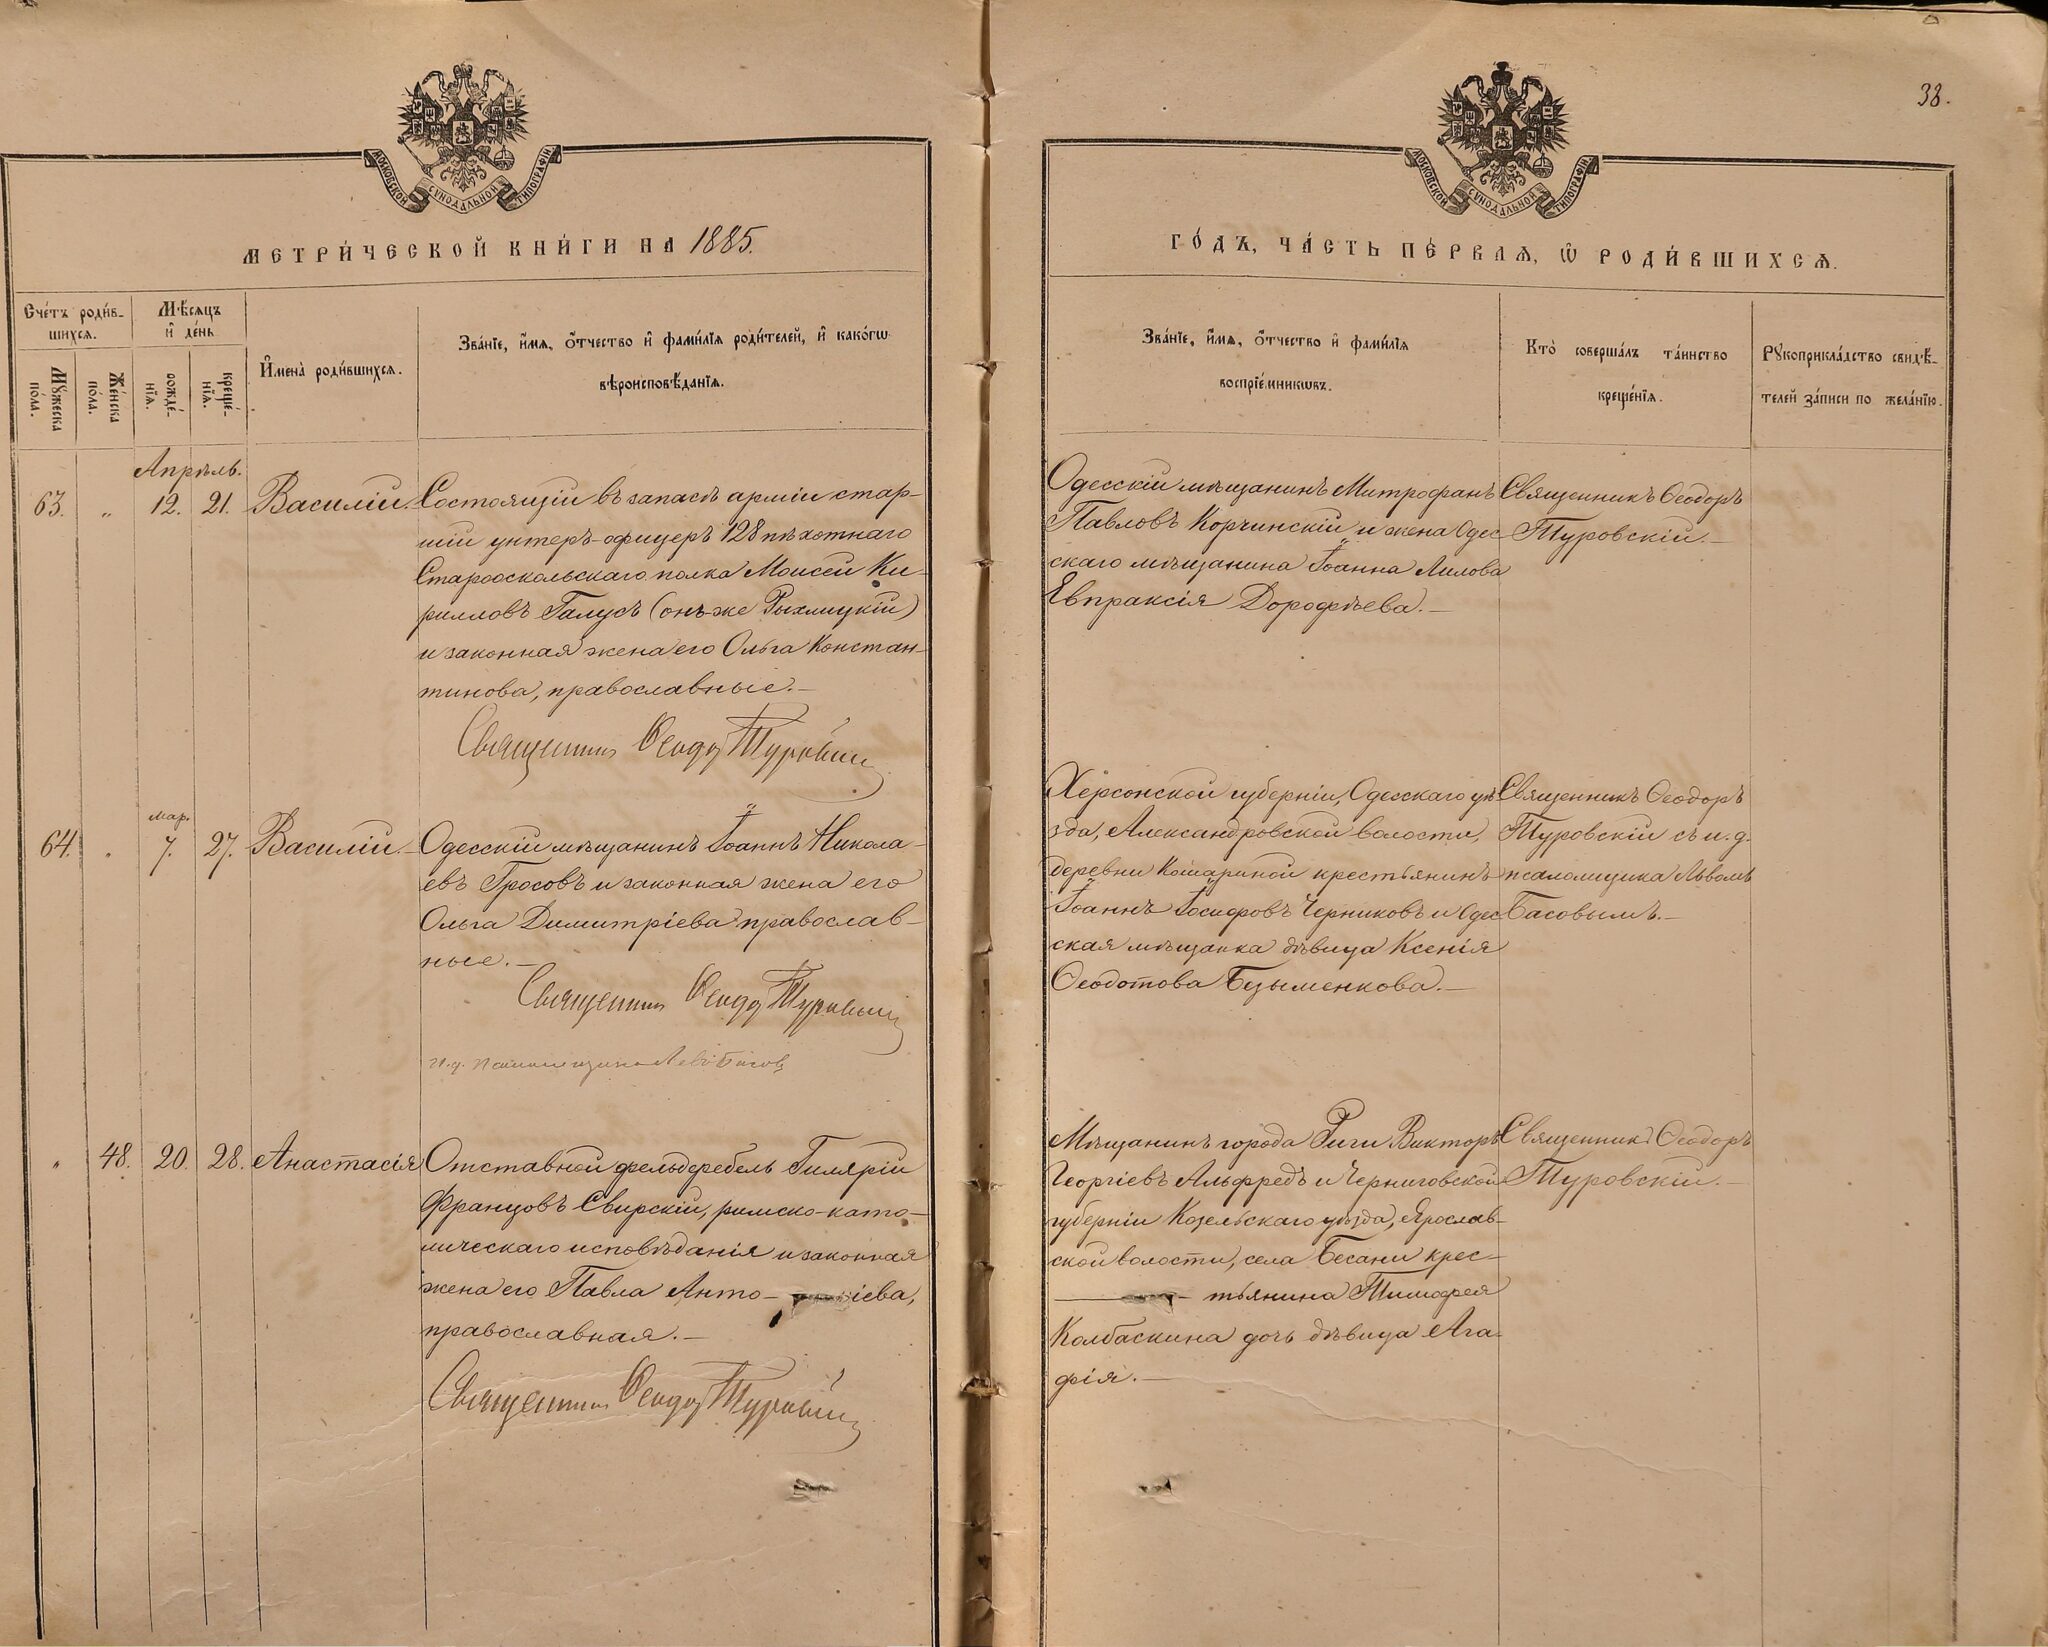 38.
МОСКОВСКОЙ СѴНОДАЛЬНОЙ ТИПОГРАФІИ
МОСКОВСКОЙ СѴНОДАЛЬНОЙ ТИПОГРАФІИ
МЕТРИ́ЧЕСКОЙ КНИ́ГИ НА 1885.
ГО́ДЪ, ЧА́СТЬ ПЕ́РВАѦ, Ѽ РОДИ́ВШИХСѦ.
Сче́тъ роди́в-
шихсѧ.
Мѣ́сѧцъ
и҆ де́нь
Мꙋ́жеска
по́ла.
Же́нска
по́ла.
рожде́-
нїѧ.
креще́-
нїѧ.
И҆мена̀ роди́вшихсѧ.
Зва́нїе, и҆́мѧ, ѻ҆́тчество и҆ фами́лїѧ роди́телей, и҆ како́гѡ
вѣроисповѣ́данїѧ.
Зва́нїе, и҆́мѧ, ѻ҆́тчество и҆ фами́лїѧ
воспрїе́мникѡвъ.
Кто̀ соверша́лъ та́инство
креще́нїѧ.
Рꙋкоприкла́дство свидѣ́-
телей за́писи по жела́нїю.
Апрѣль.
63. „ 12. 21. Василій.
Состоящій въ запасѣ арміи стар-
шій унтеръ-офицеръ 128 пѣхотнаго
Старооскольскаго полка Моисей Ки-
рилловъ Галусъ (онъ-же Рыхлицкій)
и законная жена его Ольга Констан-
тинова, православные.—
Священникъ Ѳеодоръ Туровскій
Одесскій мѣщанинъ Митрофанъ
Павловъ Корчинскій и жена Одес-
скаго мѣщанина Іоанна Лилова
Евпраксія Дорофѣева.—
Священникъ Ѳеодоръ
Туровскій.—
мар.
64. „ 7. 27. Василій.—
Одесскій мѣщанинъ Іоаннъ Никола-
евъ Гросовъ и законная жена его
Ольга Димитріева православ-
ные.—
Священникъ Ѳеодоръ Туровскій
и. д. псаломщика Левъ Басовъ
Херсонской губерніи, Одесскаго уѣ-
зда, Александровской волости,
деревни Кошариной крестьянинъ
Іоаннъ Іосифовъ Черниковъ и Одес-
ская мѣщанка дѣвица Ксенія
Ѳеодотова Безыменкова.—
Священникъ Ѳеодоръ
Туровскій съ и. д.
псаломщика Львомъ
Басовымъ.—
„ 48. 20. 28. Анастасія
Отставной фельдфебель Гилярій
Францовъ Свирскій, римско-като-
лическаго исповѣданія и законная
жена его Павла Анто- ніева,
православная.—
Священникъ Ѳеодоръ Туровскій
Мѣщанинъ города Риги Викторъ
Георгіевъ Альфредъ и Черниговской
губерніи Козельскаго уѣзда, Ярослав-
ской волости, села Бесани крес-
тьянина Тимофея
Колбаскина дочь дѣвица Ага-
фія.—
Священникъ Ѳеодоръ
Туровскій.—